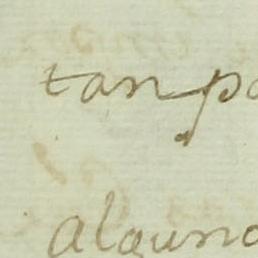 tan pa
alguno